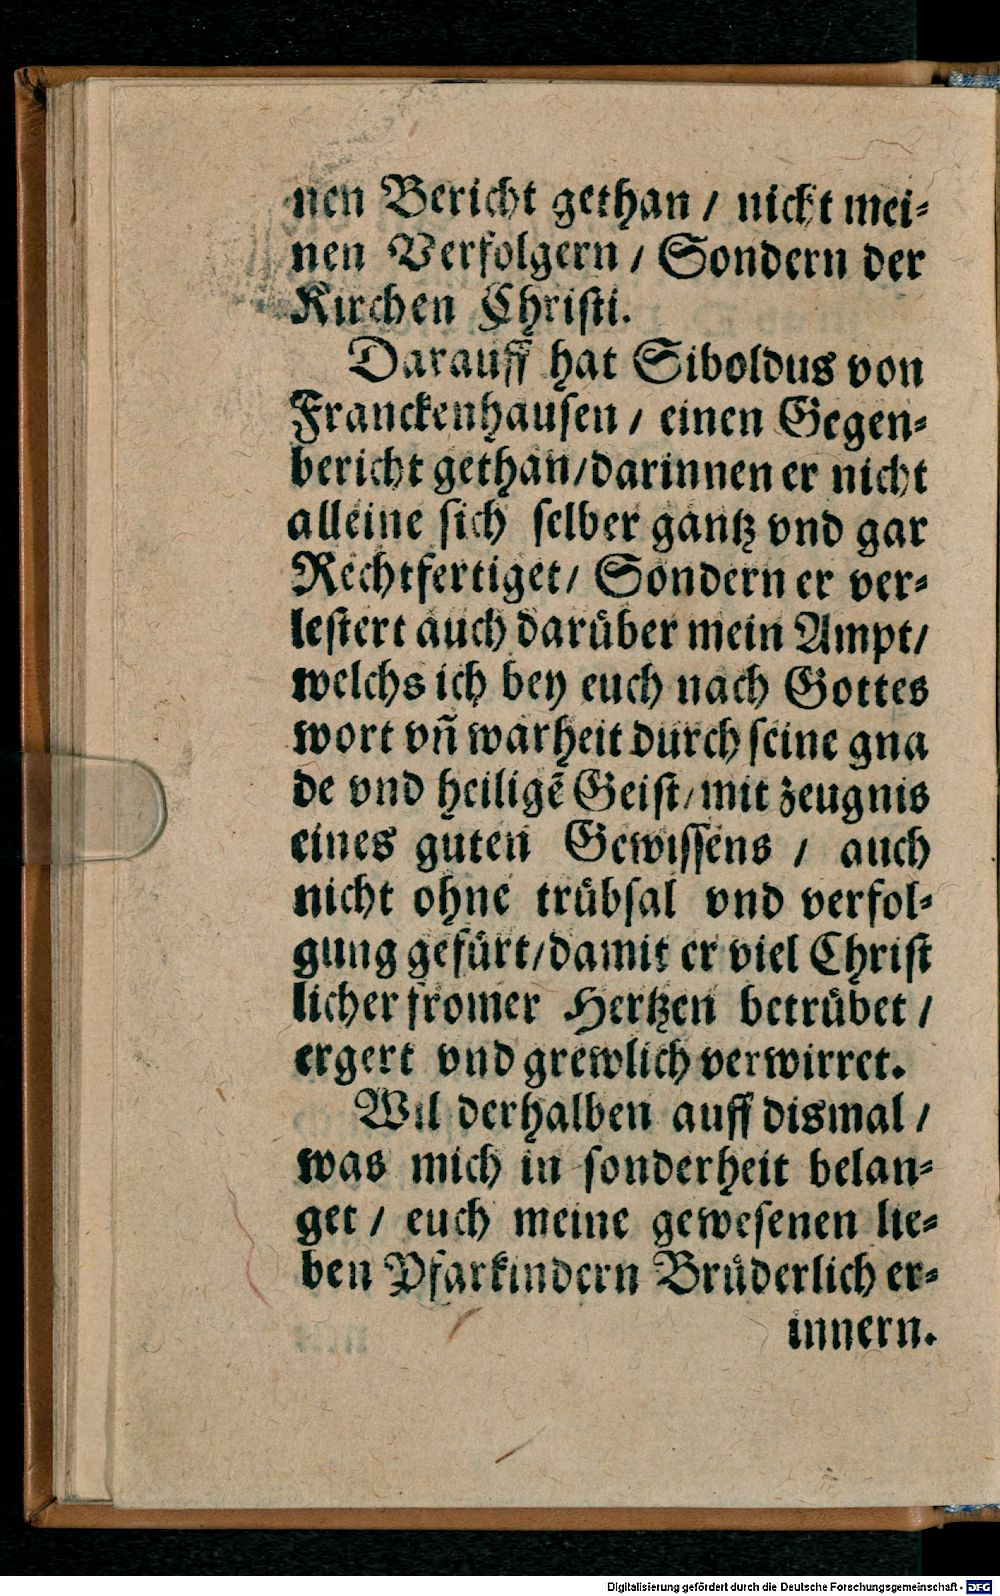 nen Bericht gethan / nicht mei⸗
nen Verfolgern / Sondern der
Kirchen Christi.
Darauff hat Siboldus von
Franckenhausen / einen Gegen⸗
bericht gethan/darinnen er nicht
alleine sich selber gantz vnd gar
Rechtfertiget/ Sondern er ver⸗
lestert auch darüber mein Ampt/
welchs ich bey euch nach Gottes
wort vn̄ warheit durch seine gna
de vnd heiligē Geist/mit zeugnis
eines guten Gewissens / auch
nicht ohne trübsal vnd verfol⸗
gung gefürt/damit er viel Christ
licher fromer Hertzen betrübet /
ergert vnd grewlich verwirret.
Wil derhalben auff dismal /
was mich in sonderheit belan⸗
get / euch meine gewesenen lie⸗
ben Pfarkindern Brüderlich er⸗
innern.
Digitalisierung gefördert durch die Deutsche Forschungsgemeinschaft - DFG